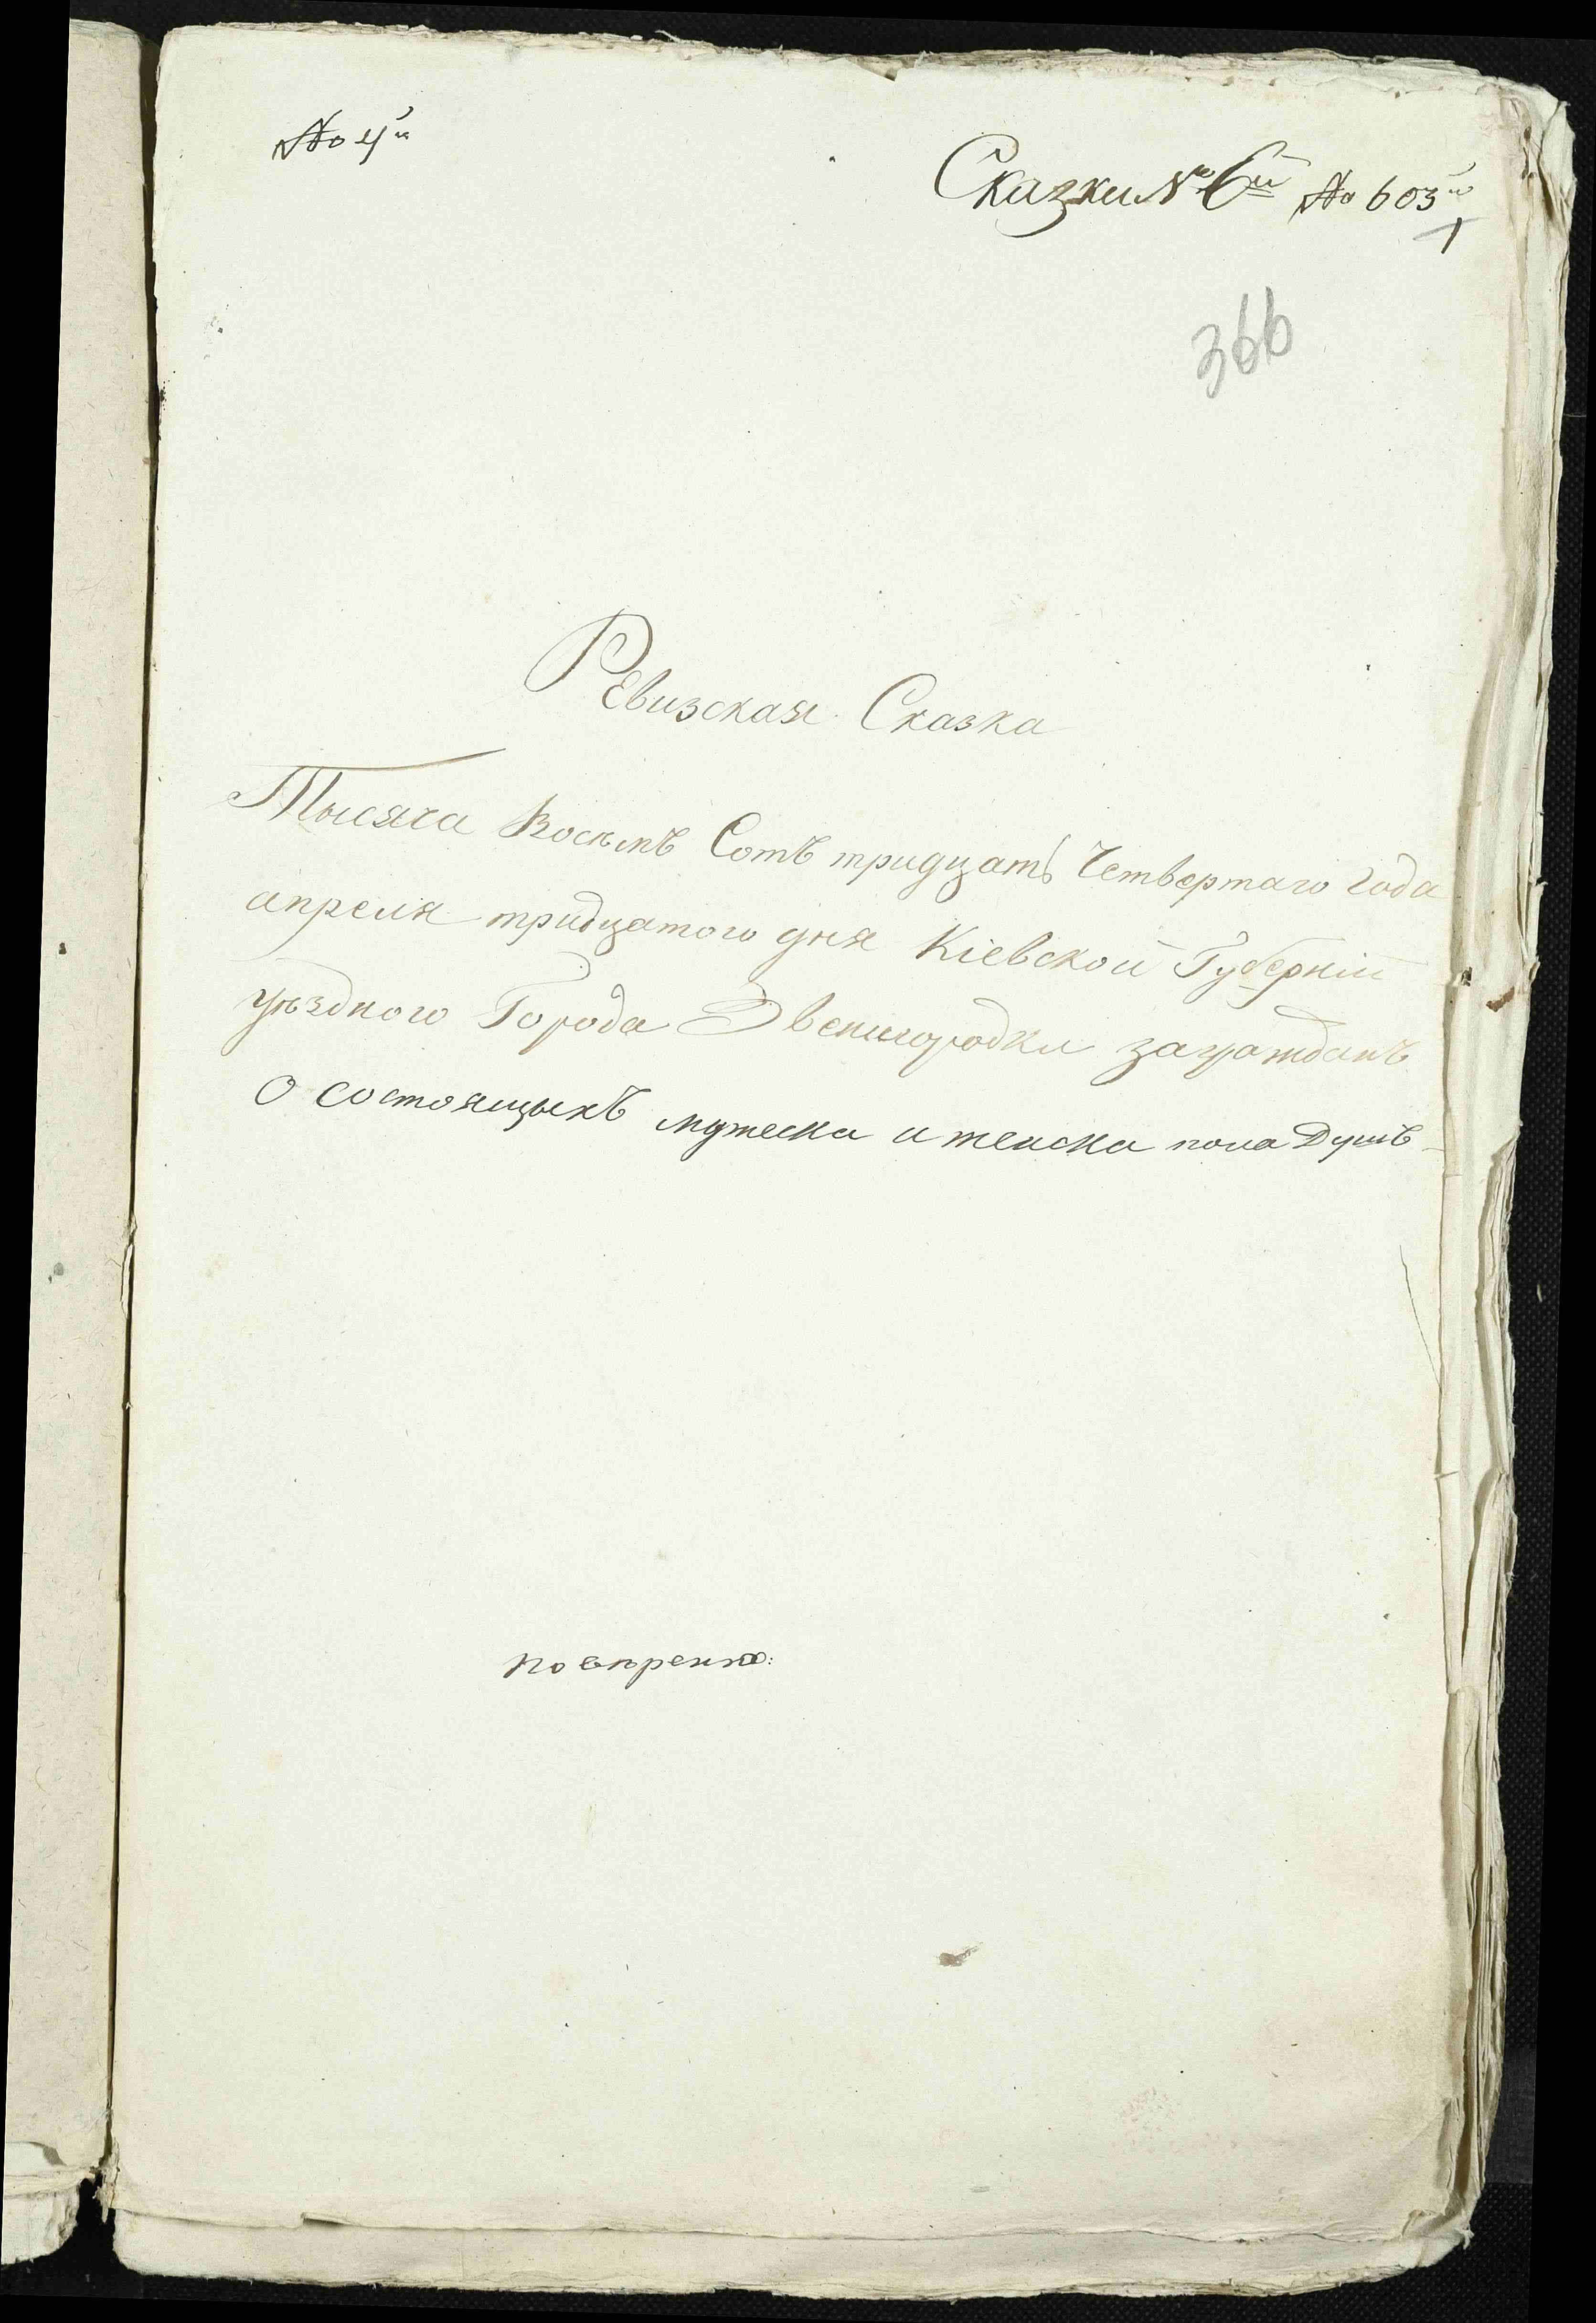 № 4й
Сказки № 6й № 603й
366
Ревизская Сказка
Тысяча Восемъ Сотъ тридцать Четвертаго Года
апреля тридцатого дня Кіевской Губерніи
уѣздного Города Звенигородки
О состоящыхъ мужеска и женска пола Душъ